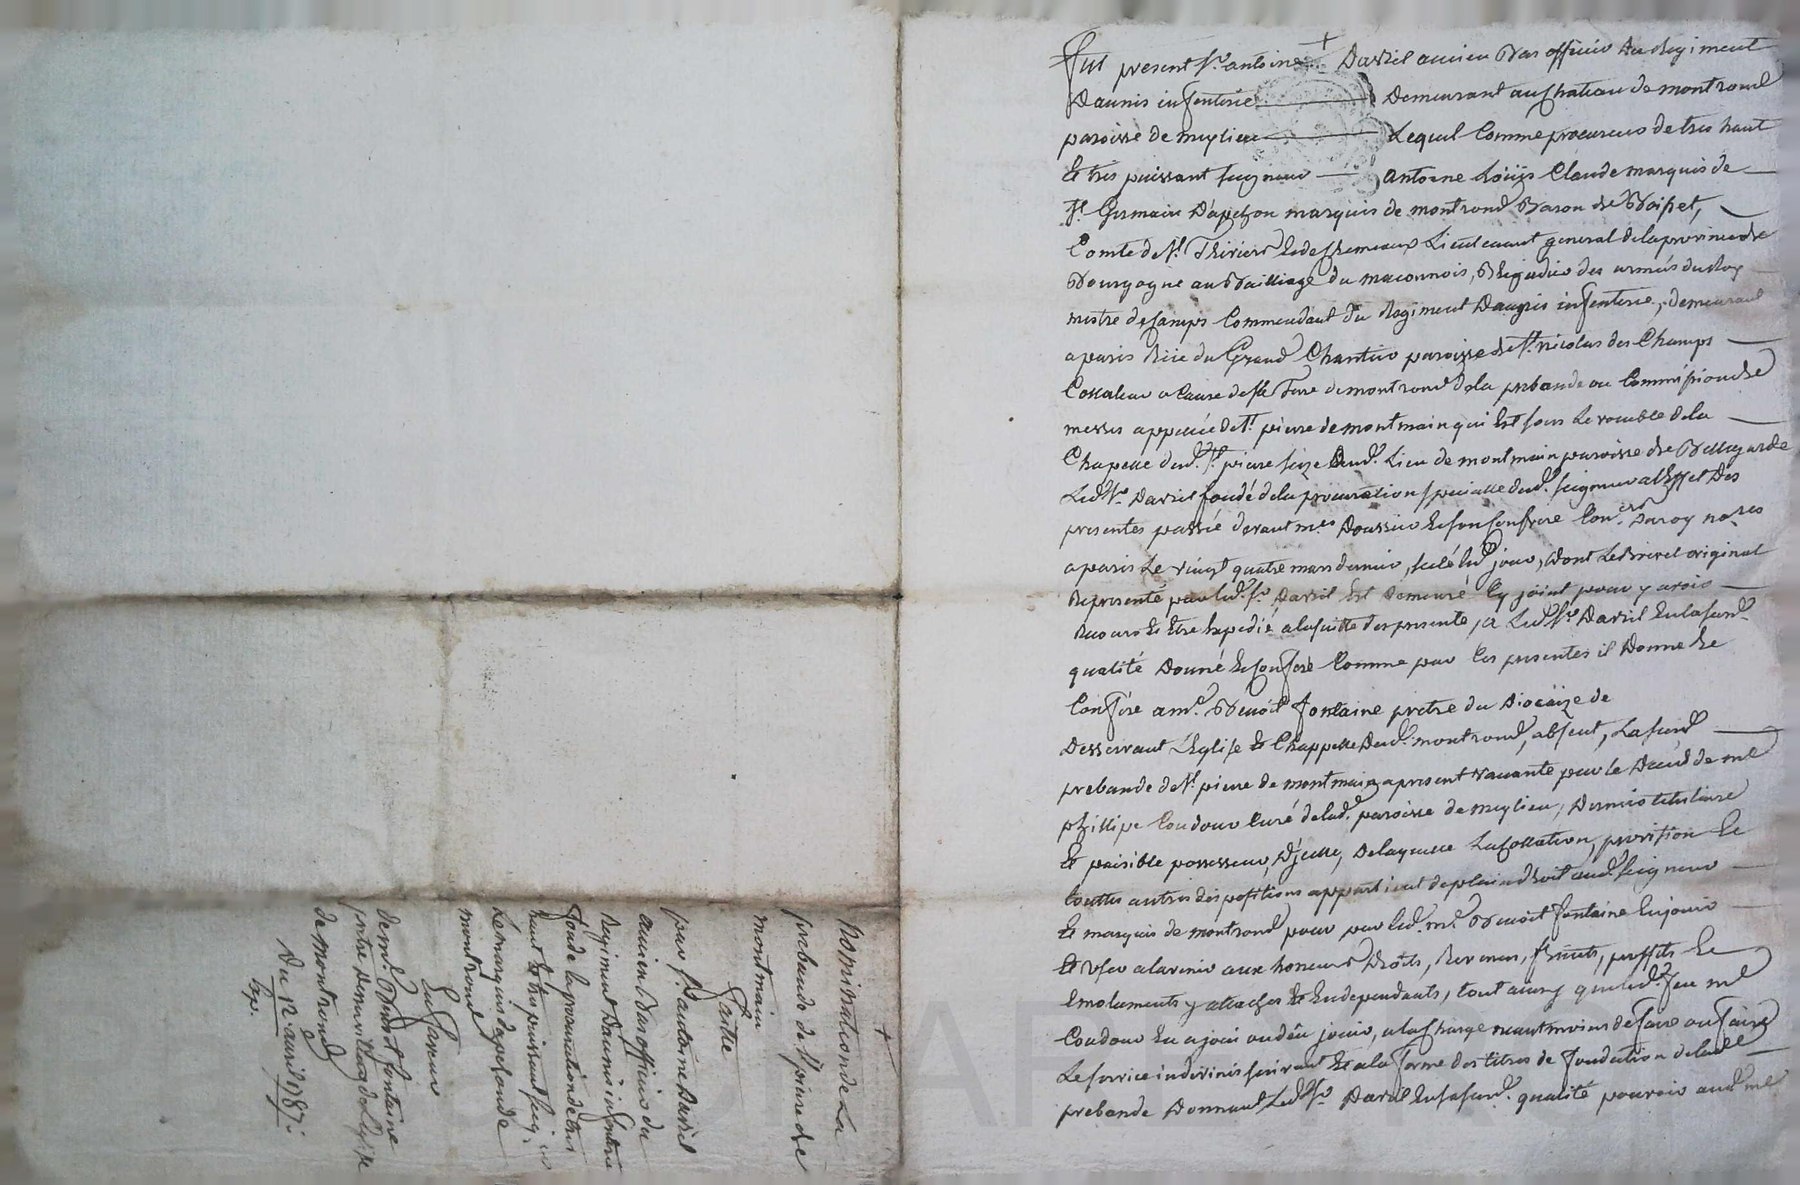 Fut present Sr. antoine Davril ancien Bas officier du Regiment
Daunis infenterie Demeurant au Chateau de montrond
paroisse de meylieu Lequel Comme procureur de tres haut
Et tres puissant seigneur antoine Loüis Claude marquis de
St. Germain D'apchon marquis de montrond Baron de Boisset,
Comte de St. Thrivier Lieutenant general de la province de
Bourgogne au Bailliage du maconnois, Brigadier des armées du Roy
mestre de Camps Commendant du Regiment Daunis infenterie, demeurant
a paris Rüe du Grand Chantier paroisse de St. nicolas des Champs
Collateur a Cause de sa Terre de montrond de la prebande ou Commission de
messes appellée de St. pierre de montmain qui Est sous Le vocable de la
Chapelle dud. St. pierre size aud. Lieu de montmain paroisse de Bellegarde
Led. Sr. Davril fondé de la procuration specialle dud. seigneur a l'Effet Des
presentes passée devant mes. Doussier et son Confrere Con.ers Du roy no.res
a paris Le vingt quatre mars dernier, scelé led. jour, Dont Le Brevet original
Representé par led. Sr. Davril Est Demeuré Cy joint pour y avoir
Recours Et Etre Expedié a la suitte des presente, a Led. Sr. Davril En la susd.
qualité Donné et Conferé Comme par Ces presentes il Donne Et
Confere a me. Benoit fontaine pretre du Diocèze de
Desservant L'Eglise Et Chappelle Dud. montrond, absent, La susd.
prebande de St. pierre de montmain a present vacante par le Decès de me
phillipe Coudour Curé de lad. paroisse de meylieu, Dernier titulaire
Et paisible possesseur, D'jcelle, De laquelle La Collation, provision Et
touttes autres dispositions appartient de plain droit aud. seigneur
Le marquis de montrond pour par led. me. Benoit fontaine En jouir
Et User a l'avenir aux honneurs Droits, Revenus, fruits, proffits Et
Emoluments y attachés Et En dependants, tout ainsy que led. feu me
Coudour En a joui ou dêu jouir, a la Charge neantmoins de faire ou faire
Le service in divinis suivant Et a la forme des titres de fondation de la de
prebande Donnant Led. Sr. Davril En sa susd. qualité pouvoir aud. me
Nomination de La
prebande de St. pierre de
montmain
faitte
par Sr. antoine Davril
ancien Bas officier du
Regiment Daunis infenterie
fondé de la procuration de tres
haut Et tres puissant seig.
Le marquis dapchon de
montrond
En faveur
de me. Benoit fontaine
pretre desservant de L'Eglise
de montrond
Du 12 avril 1787.
Exp.